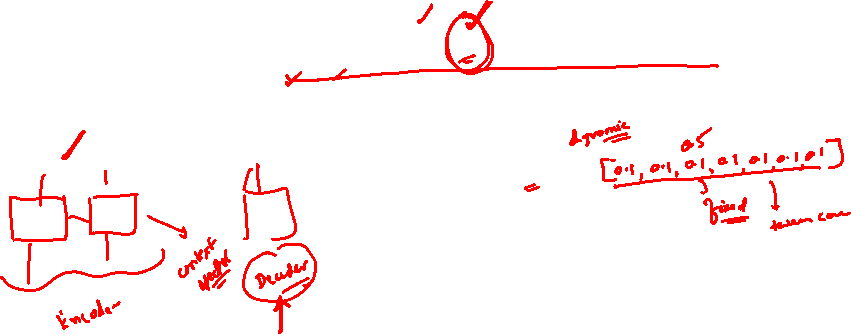 dynamic
0.5
= [0.1, 0.1, 0.1, 0.1, 0.1, 0.1, 0.1]
fixed
context
vector
Decoder
Encoder